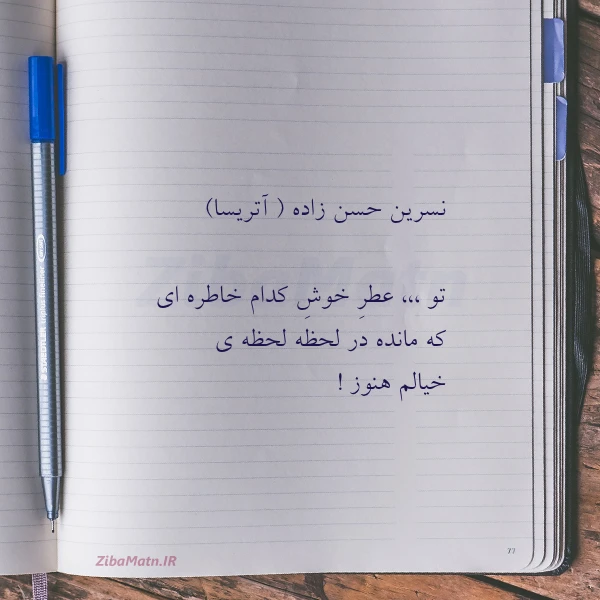 نسرین حسن زاده ( آتریسا)
تو ،،، عطرِ خوشِ کدام خاطره ای
که مانده در لحظه لحظه ی
خیالم هنوز !
ZibaMatn
ZibaMatn.IR